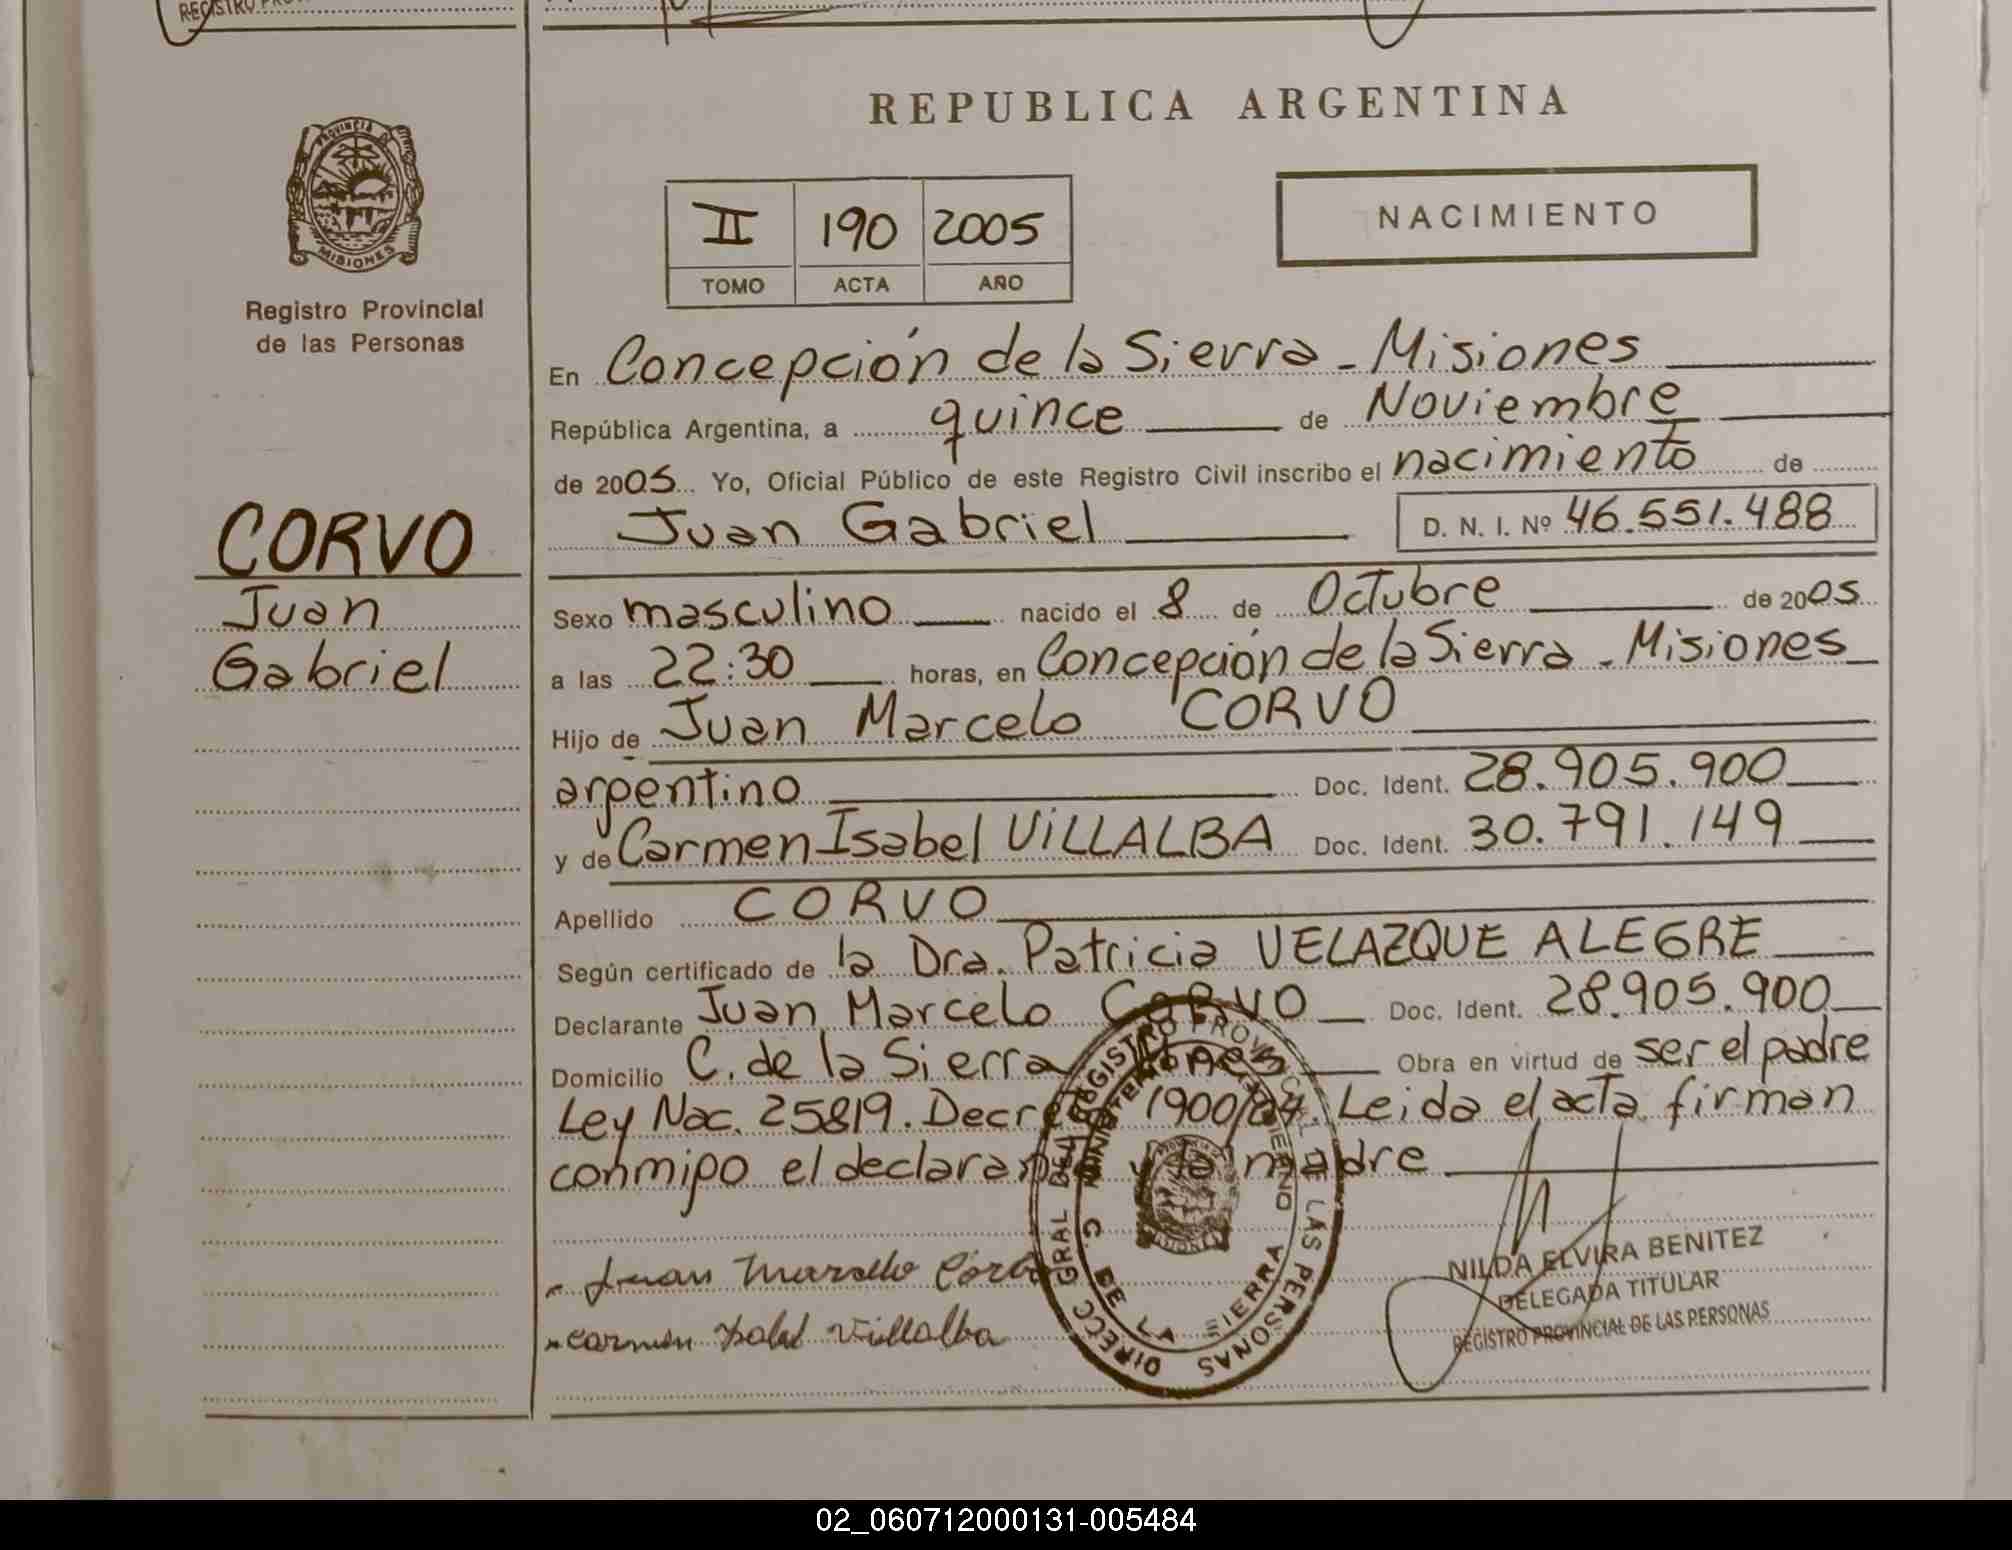 REGISTRO
REPUBLICA ARGENTINA
PROVINCIA DE
MISIONES
Registro Provincial
de las Personas
II 190 2005
TOMO ACTA AÑO
NACIMIENTO
En Concepción de la Sierra - Misiones
República Argentina, a quince de Noviembre
de 2005 Yo, Oficial Público de este Registro Civil inscribo el nacimiento de
Juan Gabriel D. N. I. Nº 46.551.488
CORVO
Juan
Gabriel
Sexo masculino nacido el 8 de Octubre de 2005
a las 22:30 horas, en Concepción de la Sierra - Misiones
Hijo de Juan Marcelo CORVO
argentino Doc. Ident. 28.905.900
y de Carmen Isabel VILLALBA Doc. Ident. 30.791.149
Apellido CORVO
Según certificado de la Dra. Patricia VELAZQUE ALEGRE
Declarante Juan Marcelo CORVO Doc. Ident. 28.905.900
Domicilio C. de la Sierra Mnes Obra en virtud de ser el padre
Ley Nac. 25819. Decreto 1900/04 Leida el acta firman
conmigo el declarante y la madre
Juan Marcelo Corvo
Carmen Isabel Villalba
DIRECC GRAL DEL REGISTRO PROVINCIAL DE LAS PERSONAS
MINISTERIO GOBIERNO
C. DE LA SIERRA
NILDA ELVIRA BENITEZ
DELEGADA TITULAR
REGISTRO PROVINCIAL DE LAS PERSONAS
02_060712000131-005484